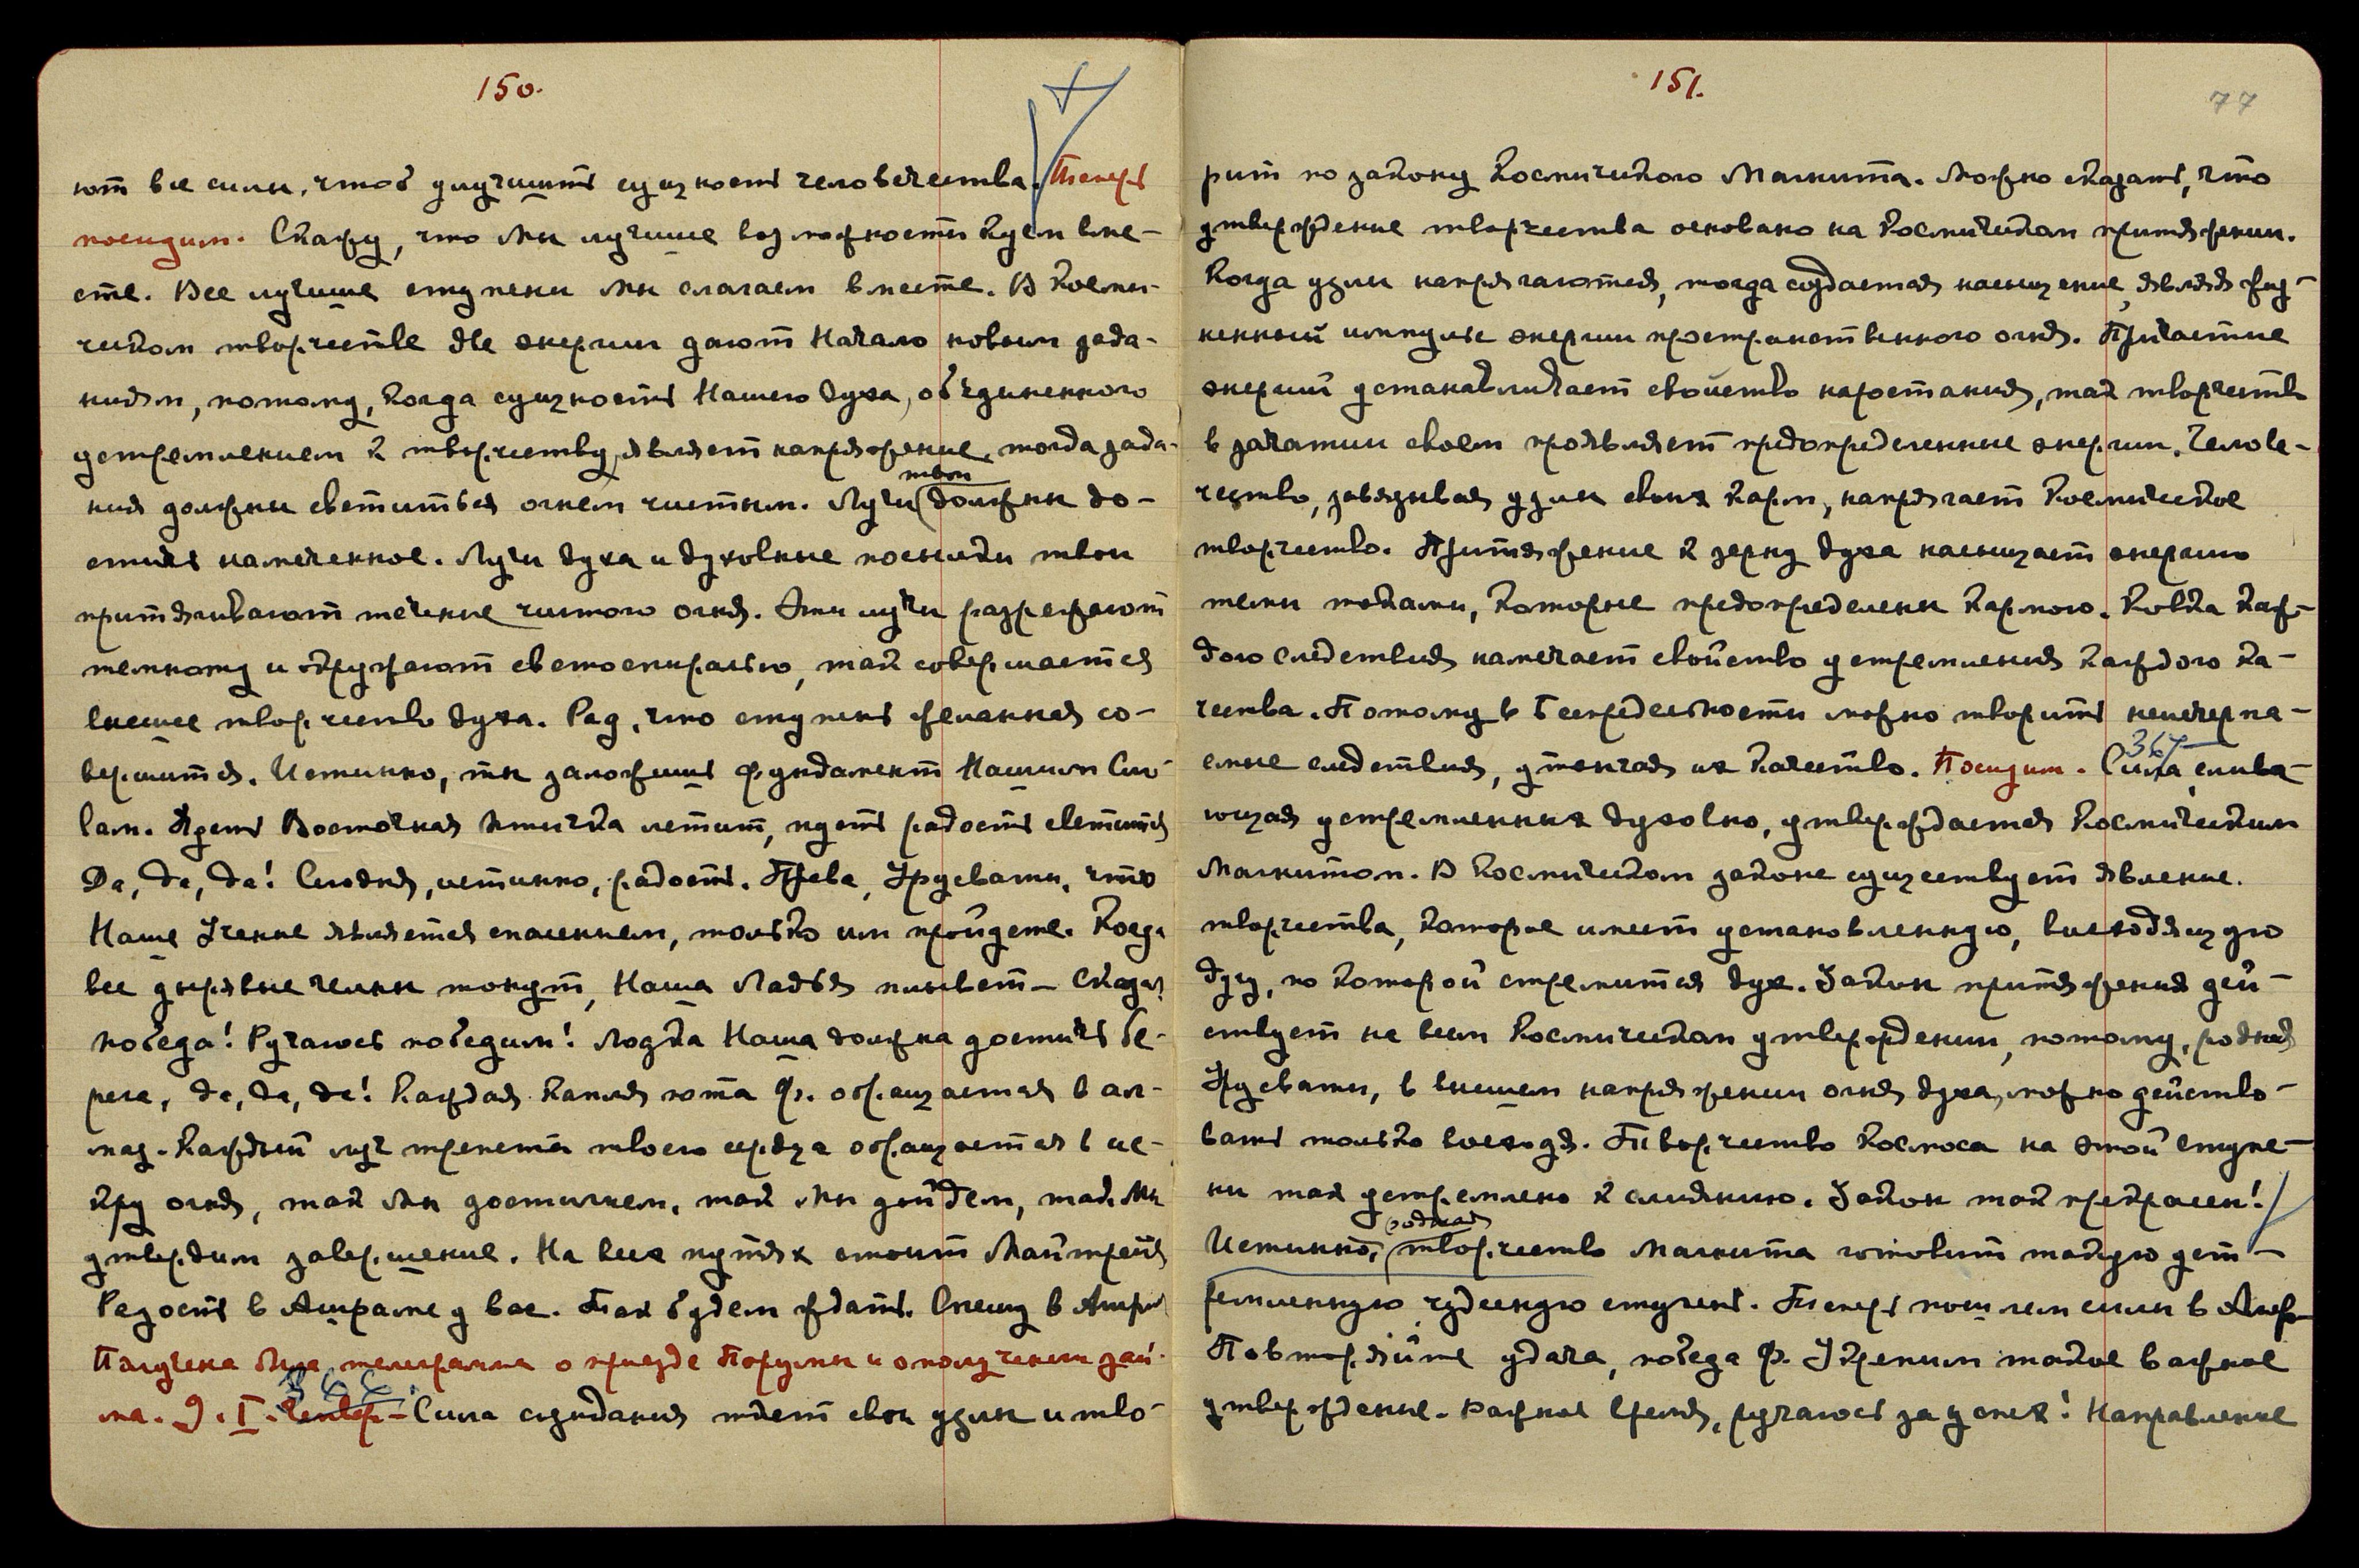 150.
ют все силы, чтоб улучшить сущность человечества. Теперь
посидим. Скажу, что Мы лучшие возможности куем вме-
сте. Все лучшие ступени Мы слагаем вместе. В Косми-
ческом творчестве две энергии дают Начало новым зада-
ниям, потому, когда сущность Нашего духа, объединенного
устремлением к творчеству, являет напряжение, тогда зада-
твои
ния должны светиться огнем чистым. Лучи должны до-
стичь намеченное. Лучи духа и духовные посылки твои
притягивают течение чистого огня. Эти лучи разрежают
темноту и окружают светоспиралью, так совершается
высшее творчество духа. Рад, что ступень желанная со-
вершится. Истинно, ты заложишь фундамент Нашим Сло-
вам. Пусть Восточная птичка летит, пусть радость светится
Да, да, да! Сегодня, истинно, радость. Права, Урусвати, что
Наше Учение является спасением, только им пройдете. Когда
все дырявые челны тонут, Наша Ладья плывет — Сказал
победа! Ручаюсь победим! Лодка Наша должна достичь бе-
рега, да, да, да! Каждая капля пота Ф. обращается в ал-
маз. Каждый луч трепета твоего сердца обращается в ис-
кру огня, так Мы достигнем, так Мы дойдем, так Мы
утвердим завершение. На всех путях стоит Майтрейя
Радость в Ашраме у вас. Так будем ждать. Спешу в Ашрам
Получена была телеграмма о приезде Порумы и о получении зай-
ма.
366.
9. I. Четвер. — Сила созидания ткет свои узлы и тво-
151.
77
рит по закону Космического Магнита. Можно сказать, что
утверждение творчества основано на Космическом притяжении.
Когда узлы напрягаются, тогда создается насыщение, являя жиз-
ненный импульс энергии пространственного огня. Причастие
энергий устанавливает свойство нарастания, так творчество
в зачатии своем проявляет предопределенные энергии. Челове-
чество, завязывая узлы своих карм, напрягает Космическое
творчество. Притяжение к зерну духа насыщает энергию
теми токами, которые предопределены кармою. Ковка каж-
дого следствия намечает свойство устремления каждого ка-
чества. Потому в Беспредельности можно творить неисчерпа-
367
емые следствия, утончая их качество. Посидим. Сила, слива-
ющая устремленных духовно, утверждается Космическим
Магнитом. В Космическом законе существует явление
творчества, которое имеет установленную, восходящую
дугу, по которой стремится дух. Закон притяжения дей-
ствует на всем Космическом утверждении, потому, родная
Урусвати, в высшем напряжении огня духа, можно действо-
вать только восходя. Творчество Космоса на этой ступе-
ни так устремлено к слиянию. Закон так прекрасен!
родная
Истинно, творчество Магнита готовит такую уст-
ремленную, чудесную ступень. Теперь пошлем силы в Амер.
Повторяйте удача, победа Ф. Укрепим такое важное
утверждение. Важное время, ручаюсь за успех! Направление